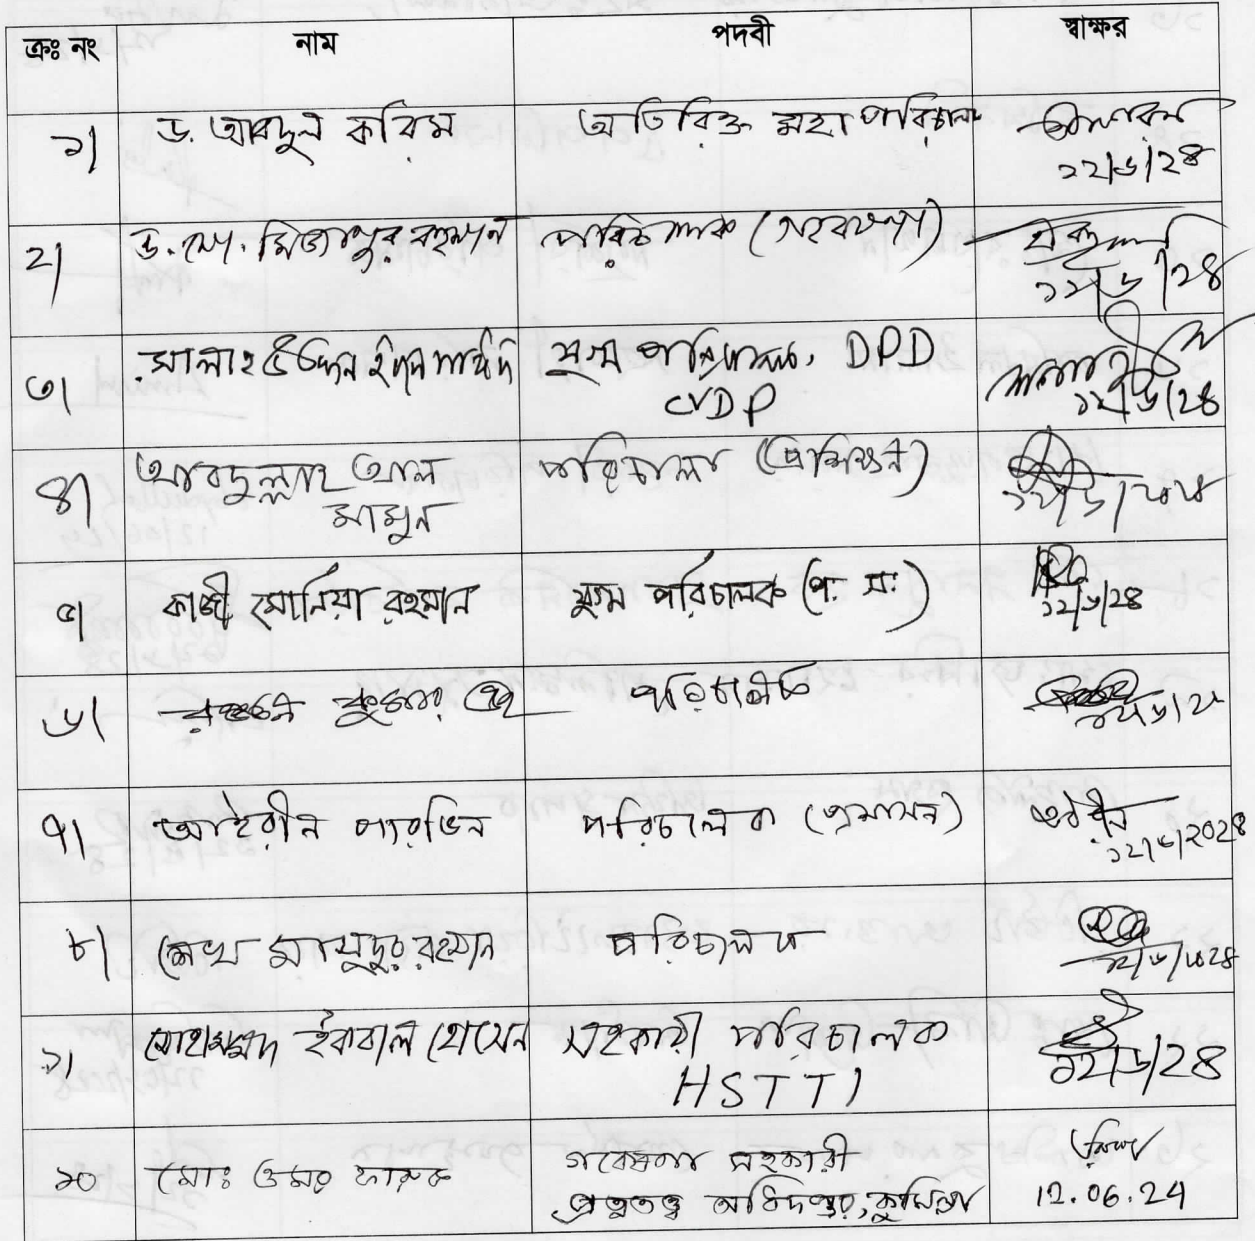 ক্রঃ নং নাম পদবী স্বাক্ষর
১| ড. আবদুল করিম অতিরিক্ত মহাপরিচালক
১২/৬/২৪
২| ড. মো. মিজানুর রহমান পরিচালক (গবেষণা)
১২/৬/২৪
৩| সালাহ উদ্দিন ইবনে সাঈদ যুগ্ম পরিচালক, DPD
CVDP ১২/৬/২৪
৪| আবদুল্লাহ আল পরিচালক (প্রশিক্ষণ)
মামুন ১২/৬/২০২৪
৫| কাজী সোনিয়া রহমান যুগ্ম পরিচালক (প. স:)
১২/৬/২৪
৬| কুমার গুহ পরিচালক
১২/৬/২৪
৭| আইরীন পারভিন পরিচালক (প্রশাসন)
১২/৬/২০২৪
৮| শেখ মাসুদুর রহমান পরিচালক
১২/৬/২০২৪
৯| মোহাম্মদ ইকবাল হোসেন সহকারী পরিচালক
HSTTI ১২/৬/২৪
১০ মোঃ ওমর ফারুক গবেষণা সহকারী
প্রত্নতত্ত্ব অধিদপ্তর, কুমিল্লা 12.06.24